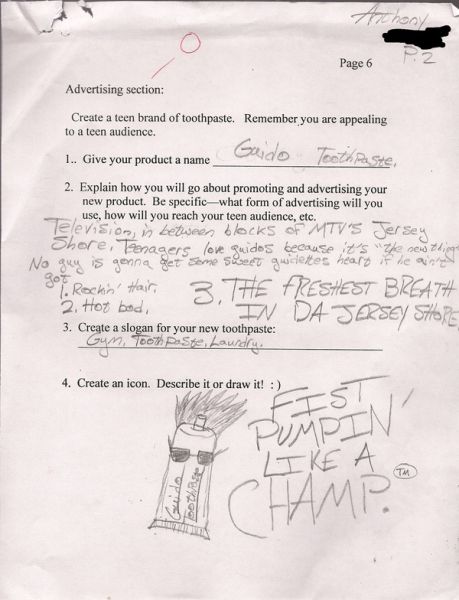 Anthony
P.2
Page 6
Advertising section:
Create a teen brand of toothpaste. Remember you are appealing
to a teen audience.
1.. Give your product a name Guido Toothpaste.
2. Explain how you will go about promoting and advertising your
new product. Be specific—what form of advertising will you
use, how will you reach your teen audience, etc.
Television, in between blocks of MTV's Jersey
Shore, Teenagers love guidos because it's "the new thing"
No guy is gonna get some sweet guidettes heart if he ain't
got
1. Rockin' Hair.
2. Hot bod.
3. THE FRESHEST BREATH
IN DA JERSEY SHORE
3. Create a slogan for your new toothpaste:
Gym, Toothpaste, Laundry.
4. Create an icon. Describe it or draw it! : )
Guido
Toothpaste
FIST
PUMPIN'
LIKE A
CHAMP.
TM